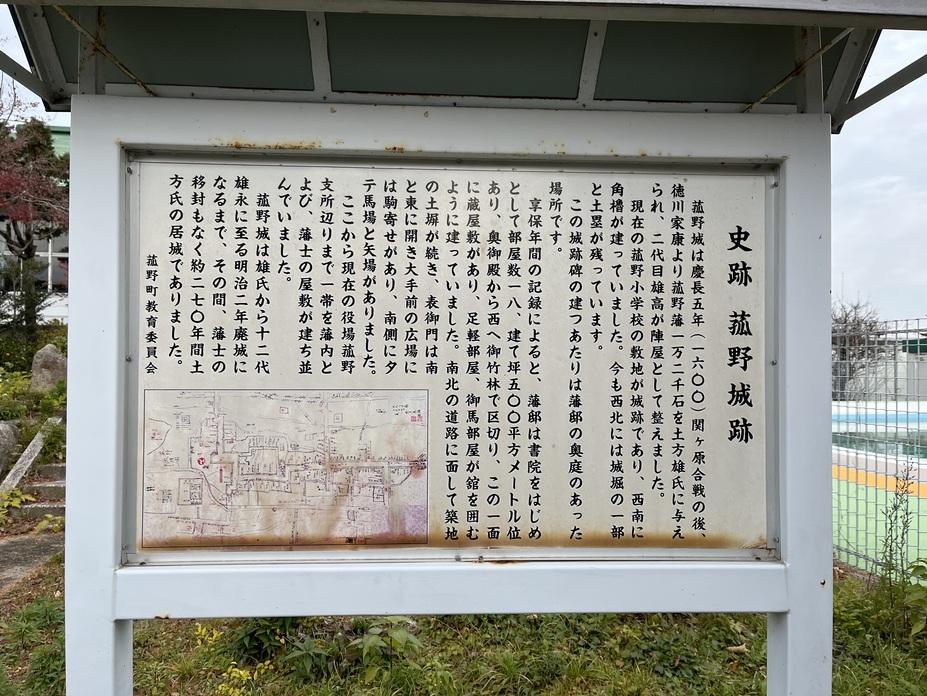 史跡　菰野城跡
菰野城は慶長五年（一六〇〇）関ヶ原合戦の後、
徳川家康より菰野藩一万二千石を土方雄氏に与え
られ、二代目雄高が陣屋として整えました。
現在の菰野小学校の敷地が城跡であり、西南に
角櫓が建っていました。今も西北には城堀の一部
と土塁が残っています。
この城跡碑の建つあたりは藩邸の奥庭のあった
場所です。
享保年間の記録によると、藩邸は書院をはじめ
として部屋数一八、建て坪五〇〇平方メートル位
あり、奥御殿から西へ御竹林で区切り、この一面
に蔵屋敷があり、足軽部屋、御馬部屋が館を囲む
ように建っていました。南北の道路に面して築地
の土塀が続き、表御門は南
と東に開き大手前の広場に
は駒寄せがあり、南側にタ
テ馬場と矢場がありました。
ここから現在の役場菰野
支所辺りまで一帯を藩内と
よび、藩士の屋敷が建ち並
んでいました。
菰野城は雄氏から十二代
雄永に至る明治二年廃城に
なるまで、その間、藩士の
移封もなく約二七〇年間土
方氏の居城でありました。
菰野町教育委員会